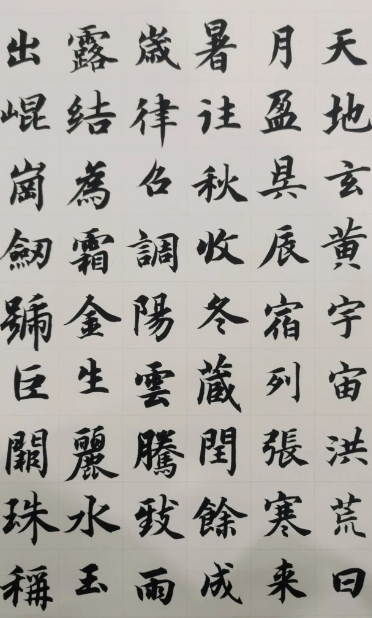 天地玄黄宇宙洪荒日
月盈昃辰宿列張寒来
暑往秋收冬蔵閏餘成
歳律吕調陽雲騰致雨
露結為霜金生麗水玉
出崐崗劒號巨闕珠稱